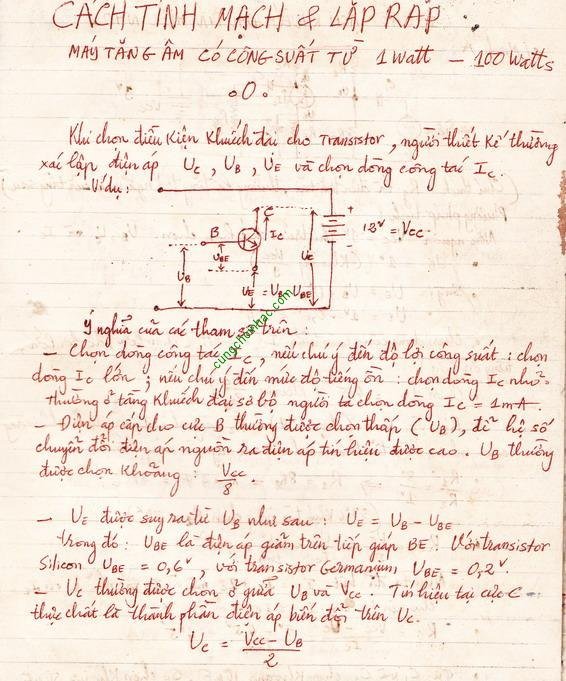 CÁCH TÍNH MẠCH & LẮP RÁP
MÁY TĂNG ÂM CÓ CÔNG SUẤT TỪ 1 Watt – 100 Watts
o0o
Khi chọn điều kiện khuếch đại cho Transistor, người thiết kế thường
xác lập điện áp UC, UB, UE và chọn dòng công tác IC.
Ví dụ:
C
B
IC
K
+
-
12V = VCC.
UBE
UC
UB
UE = UB - UBE
cungchoinhac.com
Ý nghĩa của các tham số trên:
– Chọn dòng công tác IC, nếu chú ý đến độ lợi công suất: chọn
dòng IC lớn; nếu chú ý đến mức độ tiếng ồn: chọn dòng IC nhỏ.
Thường ở tầng khuếch đại sơ bộ người ta chọn dòng IC = 1mA.
– Điện áp cấp cho cực B thường được chọn thấp (UB), để hệ số
chuyển đổi điện áp nguồn ra điện áp tín hiệu được cao. UB thường
được chọn khoảng VCC/8
– UE được suy ra từ UB như sau: UE = UB - UBE
Trong đó: UBE là điện áp giảm trên tiếp giáp BE. Với transistor
Silicon UBE = 0,6V, với transistor Germanium UBE = 0,2V.
– UC thường được chọn ở giữa UB và VCC. Tín hiệu tại cực C
thực chất là thành phần điện áp biến đổi trên UC.
UC = (VCC - UB)/2